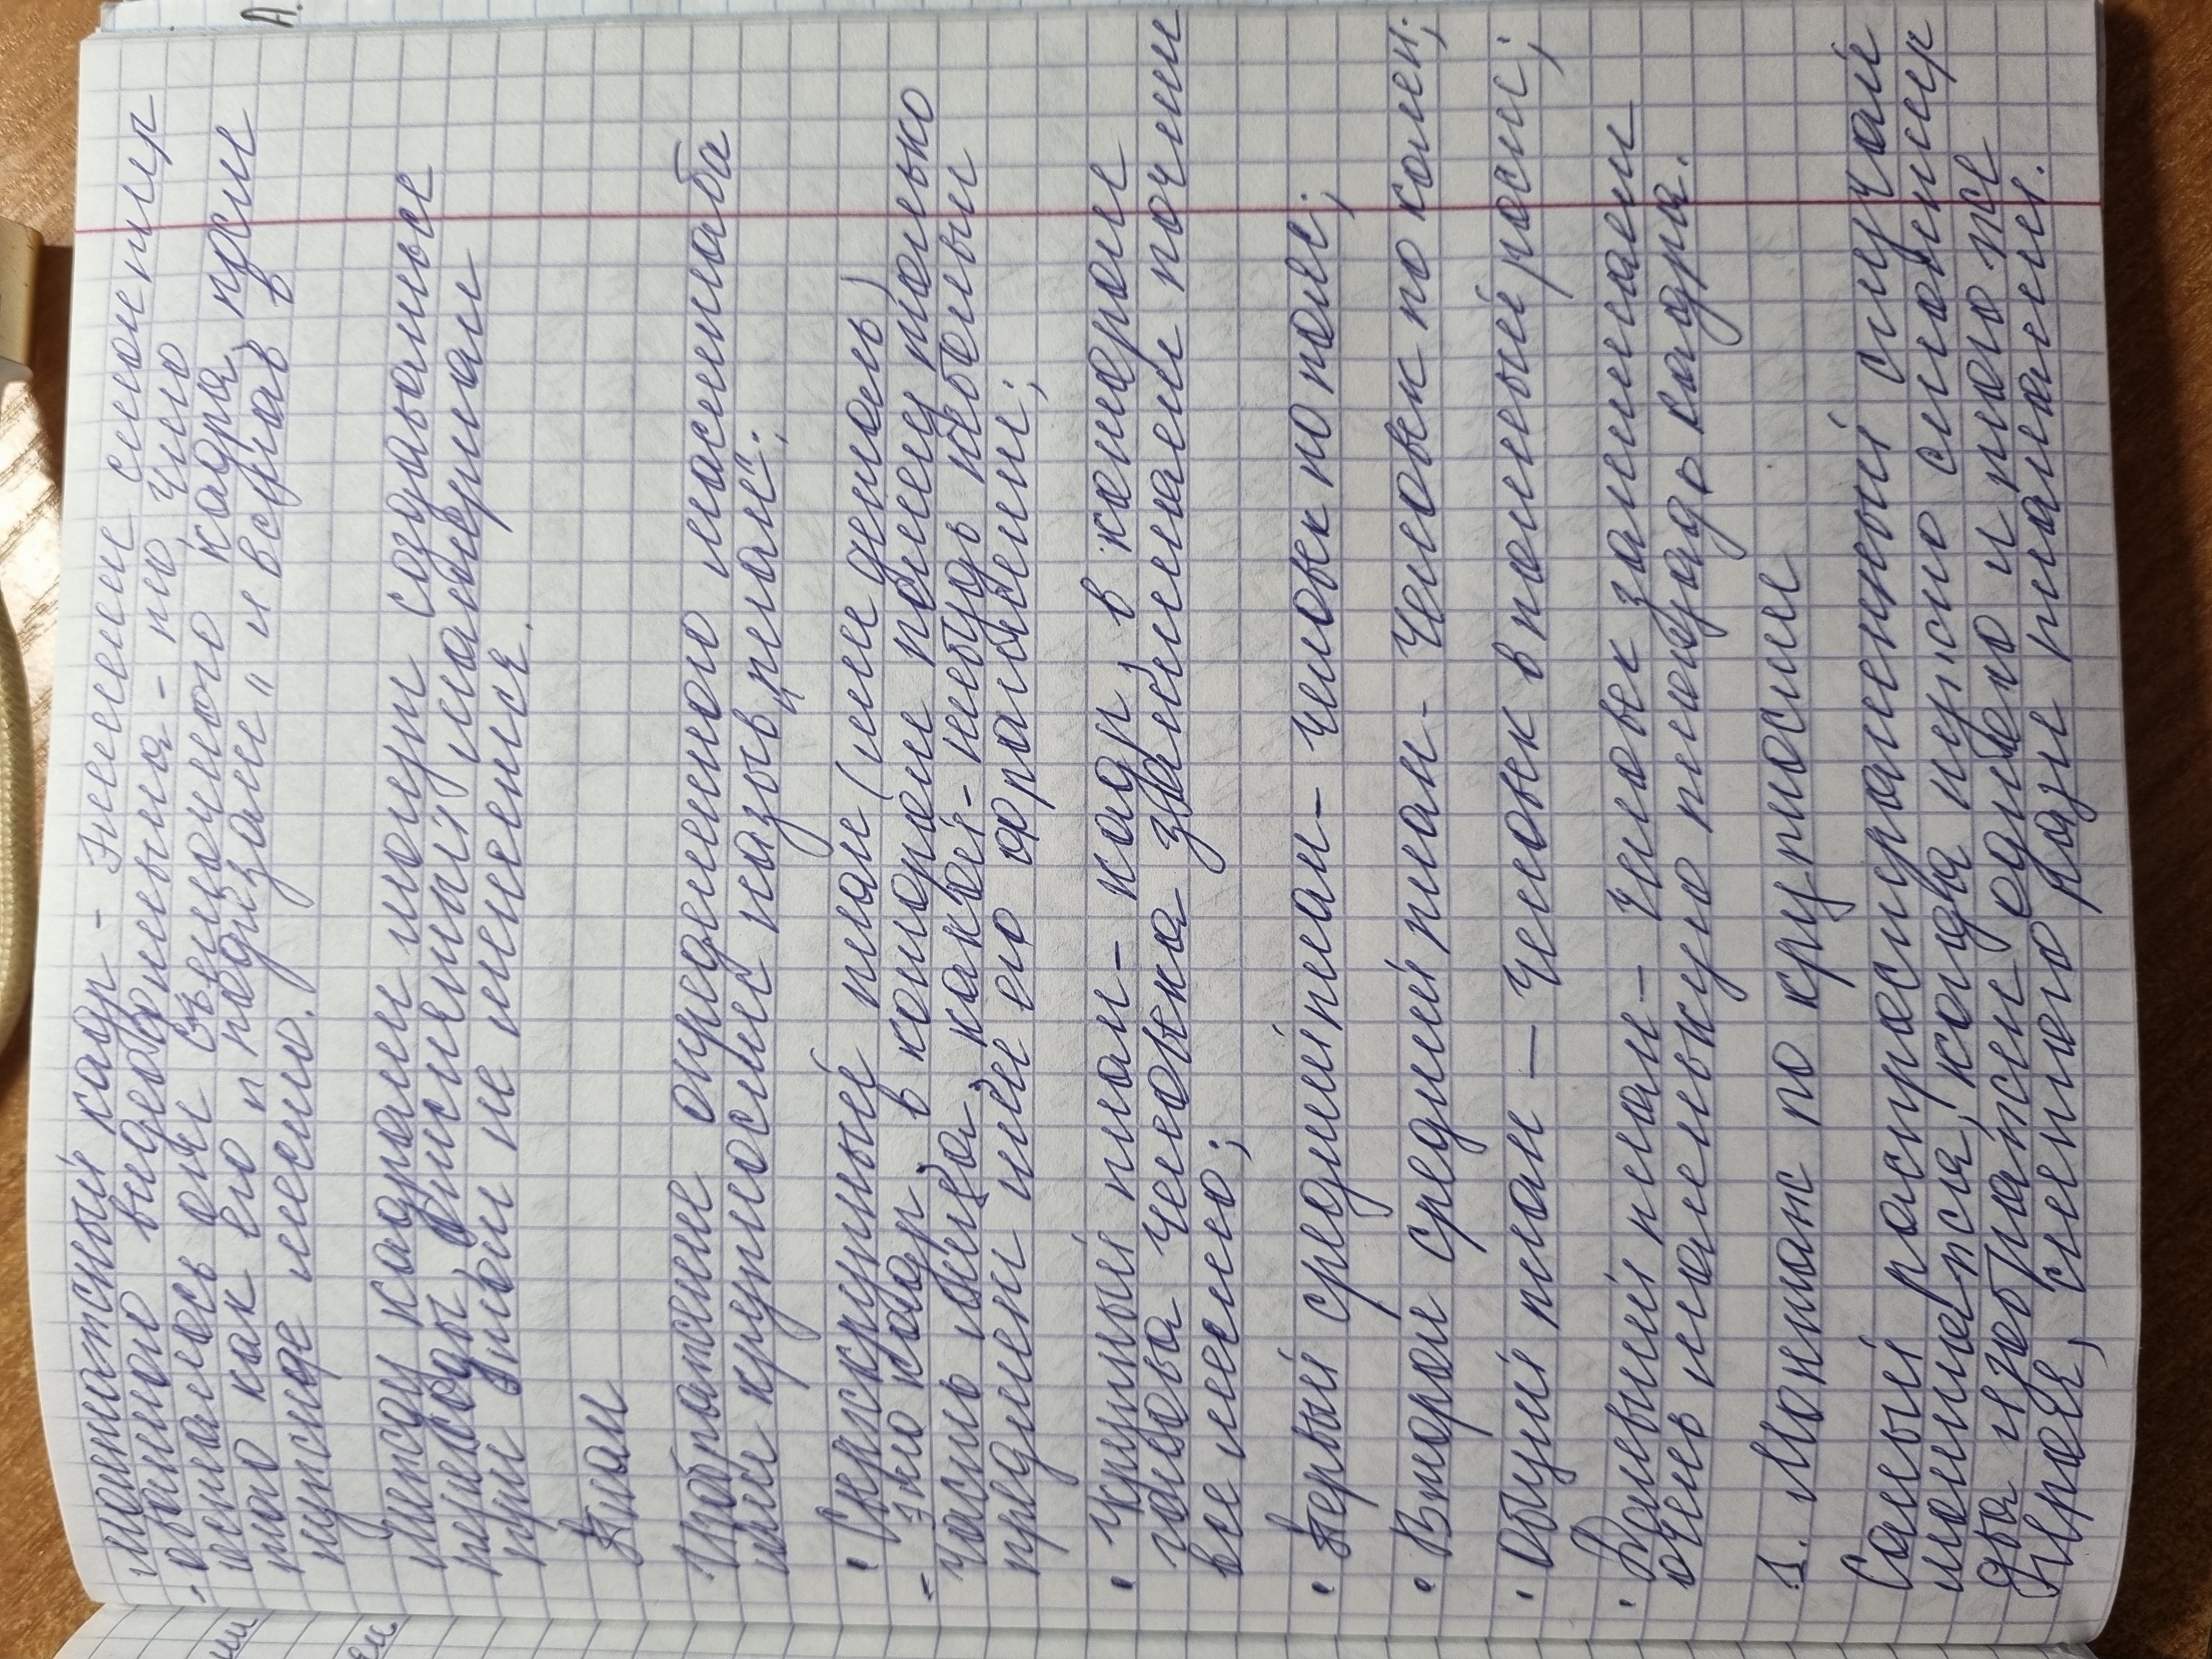 Монтажный кадр - элемент смонтир
-ованного видеофильма - то, что
осталось от съемочного кадра, после
того как его „подрезали" и встав в
нужное место.
Между кадрами могут создаваться
переходы, отснятый материал
при этом не меняется.
План
Изображение определенного масштаба
или крупности назыв „план":
• Сверхкрупный план (или деталь)
- это кадр, в котором помещ только
часть лица, какой-нибудь небольш
предмет или его фрагмент;
• Крупный план - кадр, в котором
голова человека занимает почти
все место;
• Первый средний план - человек по пояс;
• Второй средний план - человек по колен;
• Общий план — человек в полный рост;
• Дальний план - человек занимает
очень маленькую площадь кадра.
1. Монтаж по крупности
Самый распространенный случай
монтажа, когда нужно смонтир
два изображен одного и того же
героя, снятого разн планами.